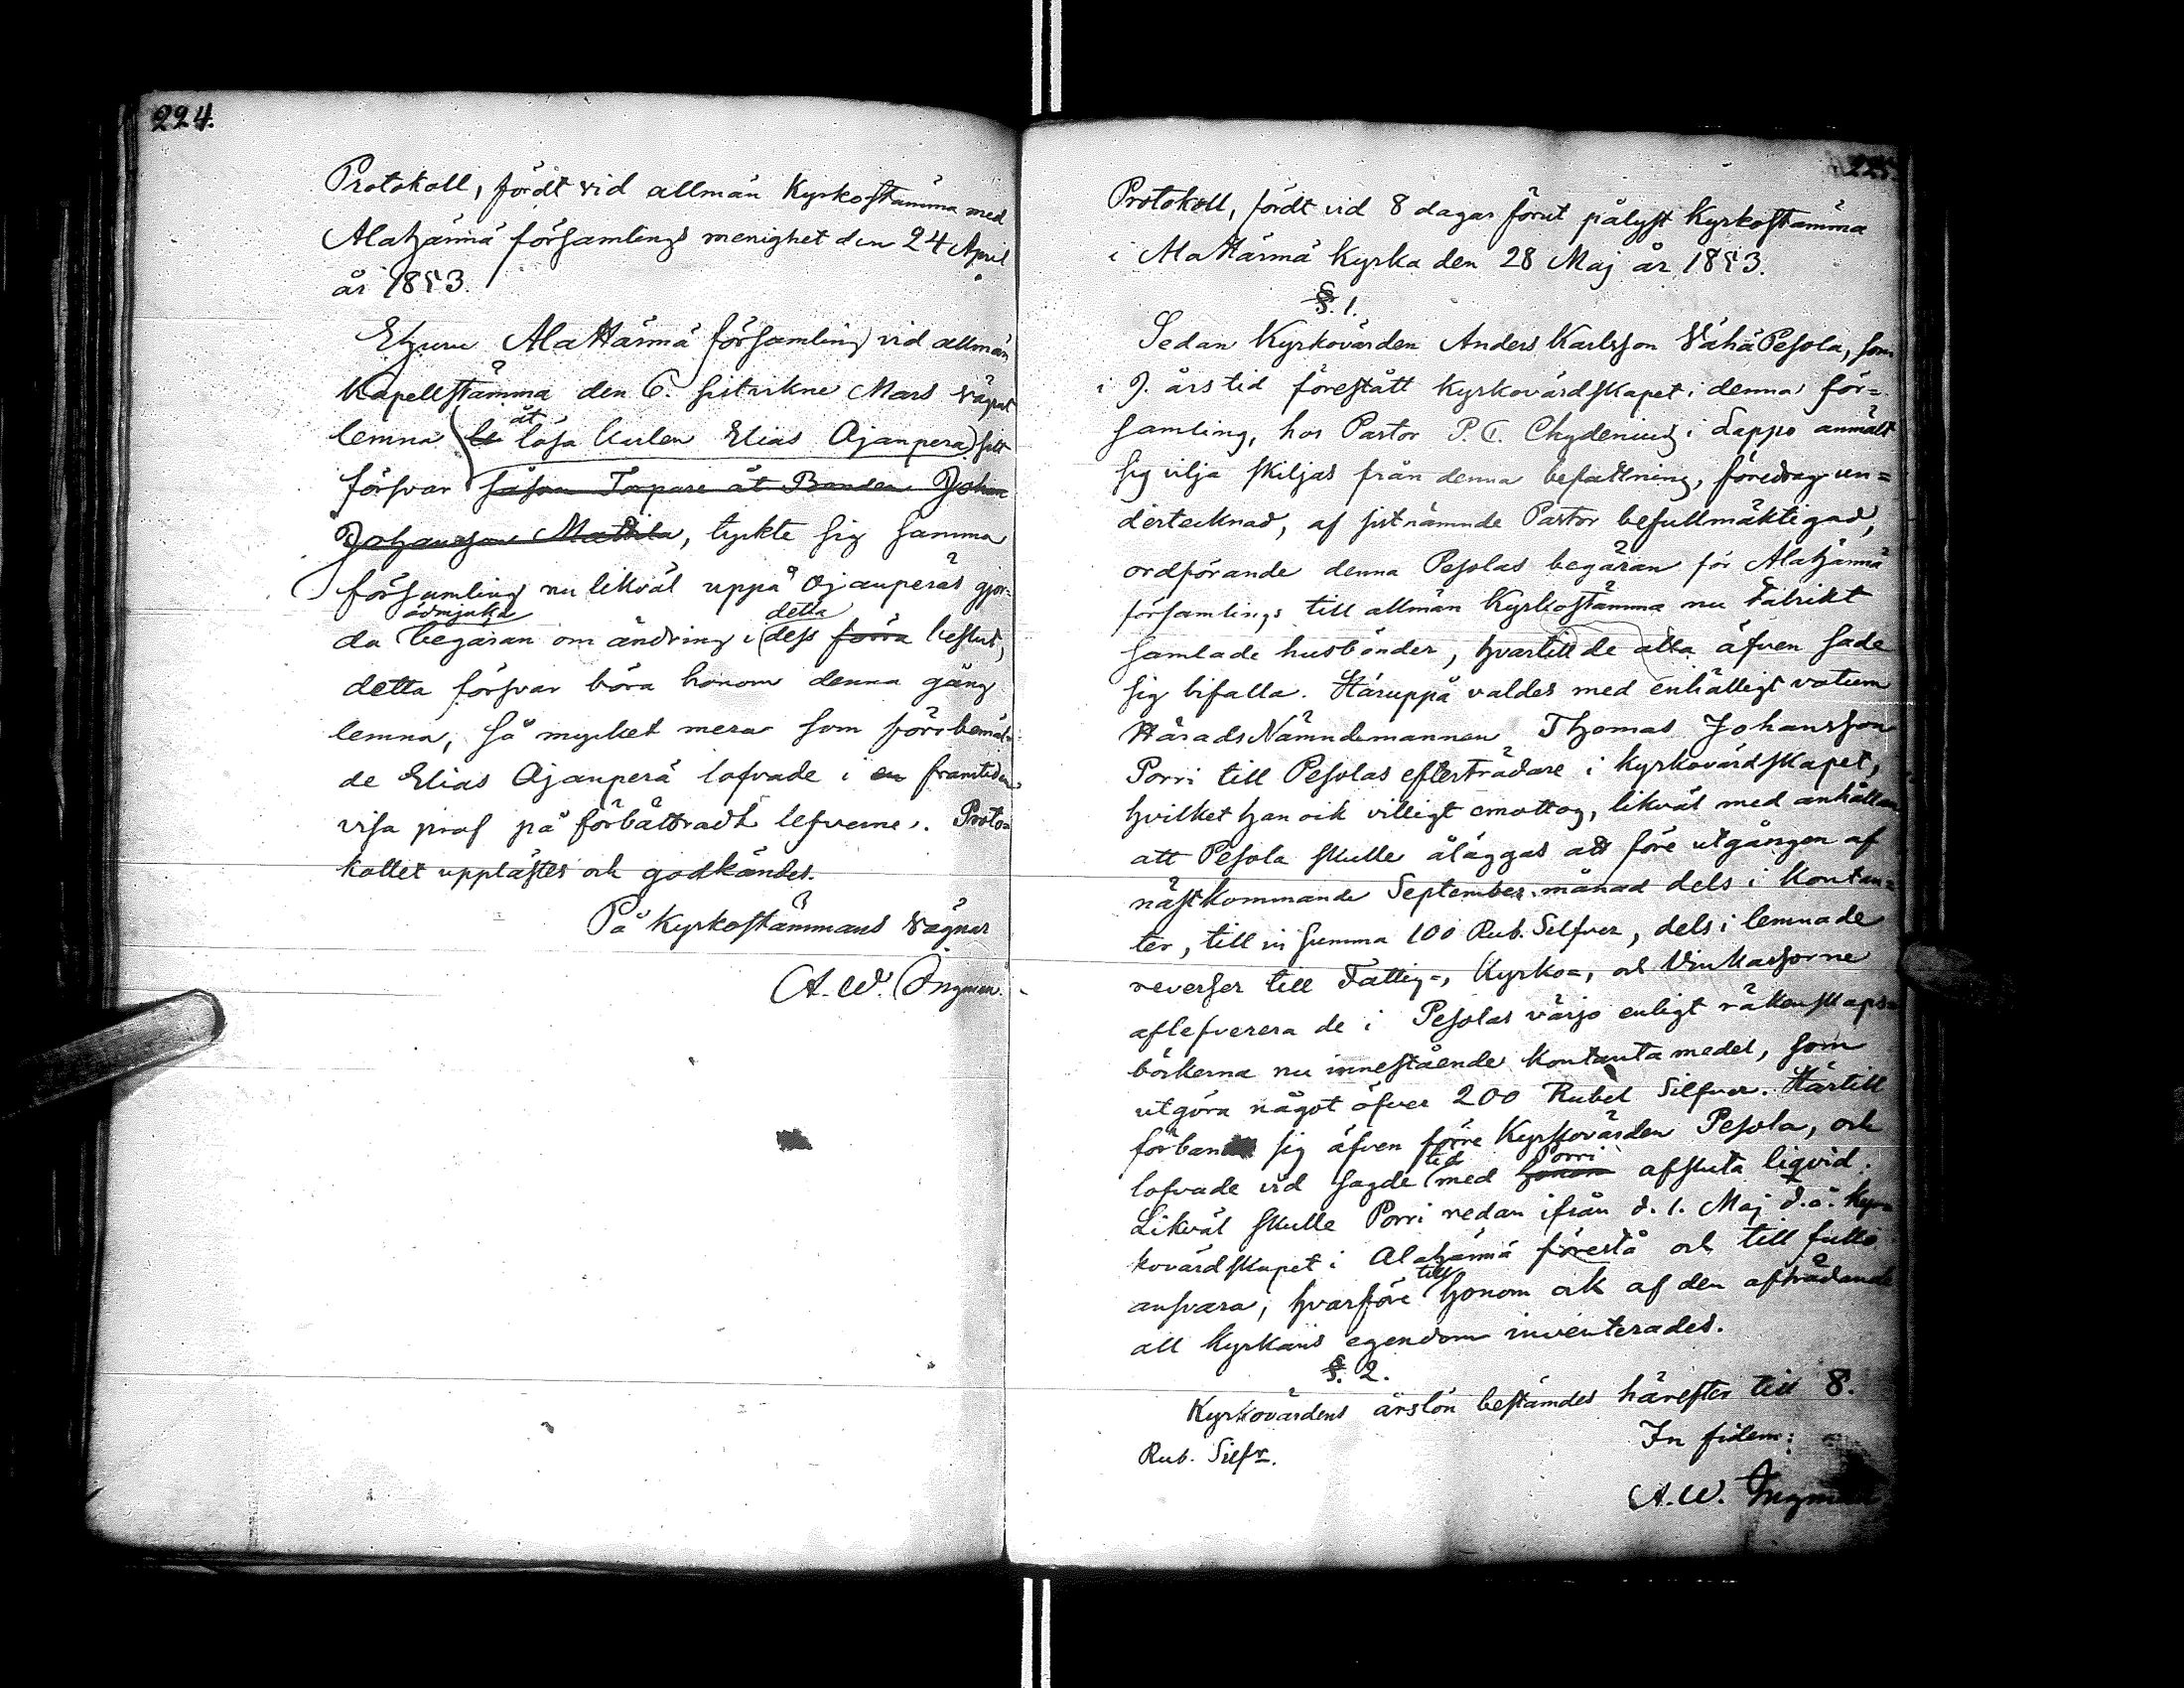 224.
Protokoll, fördt vid allmän Kyrkostämma med
Alahärmä församlings menighet den 24 April
år 1853.
Ehuru Alahärmä församling vid allmän
Kapellstämma den 6. sistvikne Mars vägrat
lemna åt lösa karlen Elias Ojanperä sitt
försvar såsom Torpare åt Bonden Johan
Johansson Mattila, tyckte sig samma
församling nu likväl uppå Ojanperäs gjor-
da ödmjuka begäran om ändring i detta dess förra beslut,
detta försvar böra honom denna gång
lemna, så mycket mera som förrbemäl-
de Elias Ojanperä lofvade i en framtiden
visa prof på förbättradt lefverne. Proto-
kollet upplästes och godkändes.
På Kyrkostämmans vägnar
A. W. Ingman.
225.
Protokoll, fördt vid 8 dagar förut pålyst Kyrkostämma
i Alahärmä Kyrka den 28 Maj år 1853.
§. 1.
Sedan Kyrkovärden Anders Karlsson Vähä Pesola, som
i 9. års tid förestått kyrkovärdskapet i denna för=
samling, hos Pastor P. G. Chydenius i Lappo anmält
sig vilja skiljas från denna befattning, föredrog un=
dertecknad, af sistnämnde Pastor befullmäktigad,
ordförande denna Pesolas begäran för Alahärmä
församlings till allmän Kyrkostämma nu talrikt
samlade husbönder, hvartill de alla äfven sade
sig bifalla. Häruppå valdes med enhälligt votum
HäradsNämndemannen Thomas Johansson
Porri till Pesolas efterträdare i kyrkovärdskapet,
hvilket han ock villigt emottog, likväl med anhållan
att Pesola skulle åläggas att före utgången af
nästkommande September månad dels i kontan=
ter, till in summa 100 Rub. Silfver, dels i lemnade
reverser till Fattig-, Kyrko-, och Vinkassorne
aflefverera de i Pesolas värjo enligt räkenskaps=
böckerna nu innestående kontanta medel, som
utgöra något öfver 200 Rubel Silfver. Härtill
förband sig äfven förre Kyrkovärden Pesola, och
lofvade vid sagde tid med honom Porri afsluta liqvid.
Likväl skulle Porri redan ifrån d. 1. Maj d.å. Kyr=
kovärdskapet i Alahärmä förestå och till fullo
ansvara, hvarföre till honom ock af den afträdande
all kyrkans egendom inventerades.
§. 2.
Kyrkovärdens årslön bestämdes härefter till 8.
Rub. Silfr.
In fidem:
A. W. Ingman